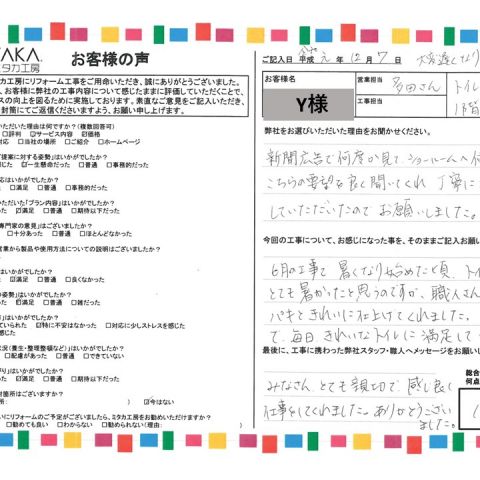 TAKA.
タカ工房
お客様の声
タカ工房にリフォーム工事をご用命いただき、誠にありがとうございました。
様に、弊社の工事内容について感じたままに評価していただくことで、
スの向上を図るために実施しております。素直なご意見をご記入いただき、
封筒にてご返信くださいますよう、お願い申し上げます。
いただいた理由は何ですか?(複数回答可)
□評判 ☑サービス内容 ☑価格
対応 □当社の場所 □ご紹介 □ホームページ
「提案に対する姿勢」はいかがでしたか?
じた ☑一生懸命だった □普通 □事務的だった
応はいかがでしたか?
た ☑満足 □普通 □事務的だった
いただいた「プラン内容」はいかがでしたか?
た ☑満足 □普通 □期待以下だった
専門家の意見」はございましたか?
□十分あった □普通 □ほとんどなかった
営業から製品や使用方法についての説明はございましたか?
はいかがでしたか?
た ☑満足 □普通 □良くなかった
の姿勢」はいかがでしたか?
た ☑満足 □普通 □雑だった
たか?
ていられた ☑特に不安はなかった □対応に少しストレスを感じた
に感じた
状況(養生・整理整頓など)はいかがでしたか?
□配慮があった □普通 □できていない
がり」はいかがでしたか?
た ☑満足 □普通 □期待以下だった
討箇所はございますか?
) ☑今はない
いにリフォームのご予定がございましたら、ミタカ工房をお勧めいただけますか?
ても良い □わからない □勧められない(理由: )
ご記入日 平成 元年 12月 7日
お客様名
Y様
営業担当 多田さん
工事担当
トイレ
弊社をお選びいただいた理由をお聞かせください。
新聞広告で何度か見て、ショールームへ
こちらの要望を良く聞いてくれ、丁寧に
していただいたので お願いしました。
今回の工事について、お感じになった事を、そのままご記入お願い
6月の工事で 暑くなり始めた頃、トイ
とても暑かったと思うのですが、職人さん
パキときれいに仕上げてくれました。
て、毎日、きれいなトイレに満足して
最後に、工事に携わった弊社スタッフ・職人へメッセージをお願いし
みなさん、とても親切で 感じ良く
仕事をしてくれました。ありがとうござい
ました。
総合
何点